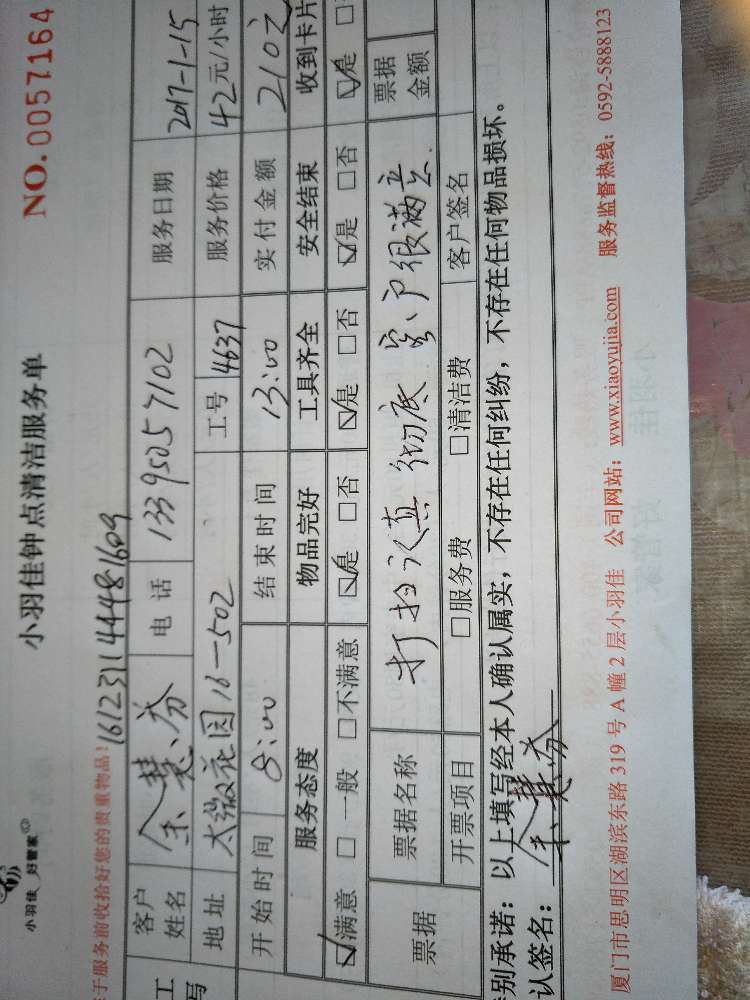 小羽佳 好管家
小羽佳钟点清洁服务单
NO.0057164
于服务前收拾好您的贵重物品!
161231144481609
工
写
客户姓名 余慧芬 电话 13395057102 服务日期 2017-1-15
地址 太微花园16-502 工号 4637 服务价格 42元/小时
开始时间 8:00 结束时间 13:00 实付金额 210元
服务态度 物品完好 工具齐全 安全结束 收到卡片
☑满意 □一般 □不满意 ☑是 □否 ☑是 □否 ☑是 □否 ☑是 □
票据 票据名称 打扫认真 彻底 客户很满意 票据金额
开票项目 □服务费 □清洁费 客户签名
别承诺:以上填写经本人确认属实,不存在任何纠纷,不存在任何物品损坏。
认签名: 余慧芬
厦门市思明区湖滨东路 319 号 A 幢 2 层小羽佳 公司网站: www.xiaoyujia.com 服务监督热线: 0592-5888123